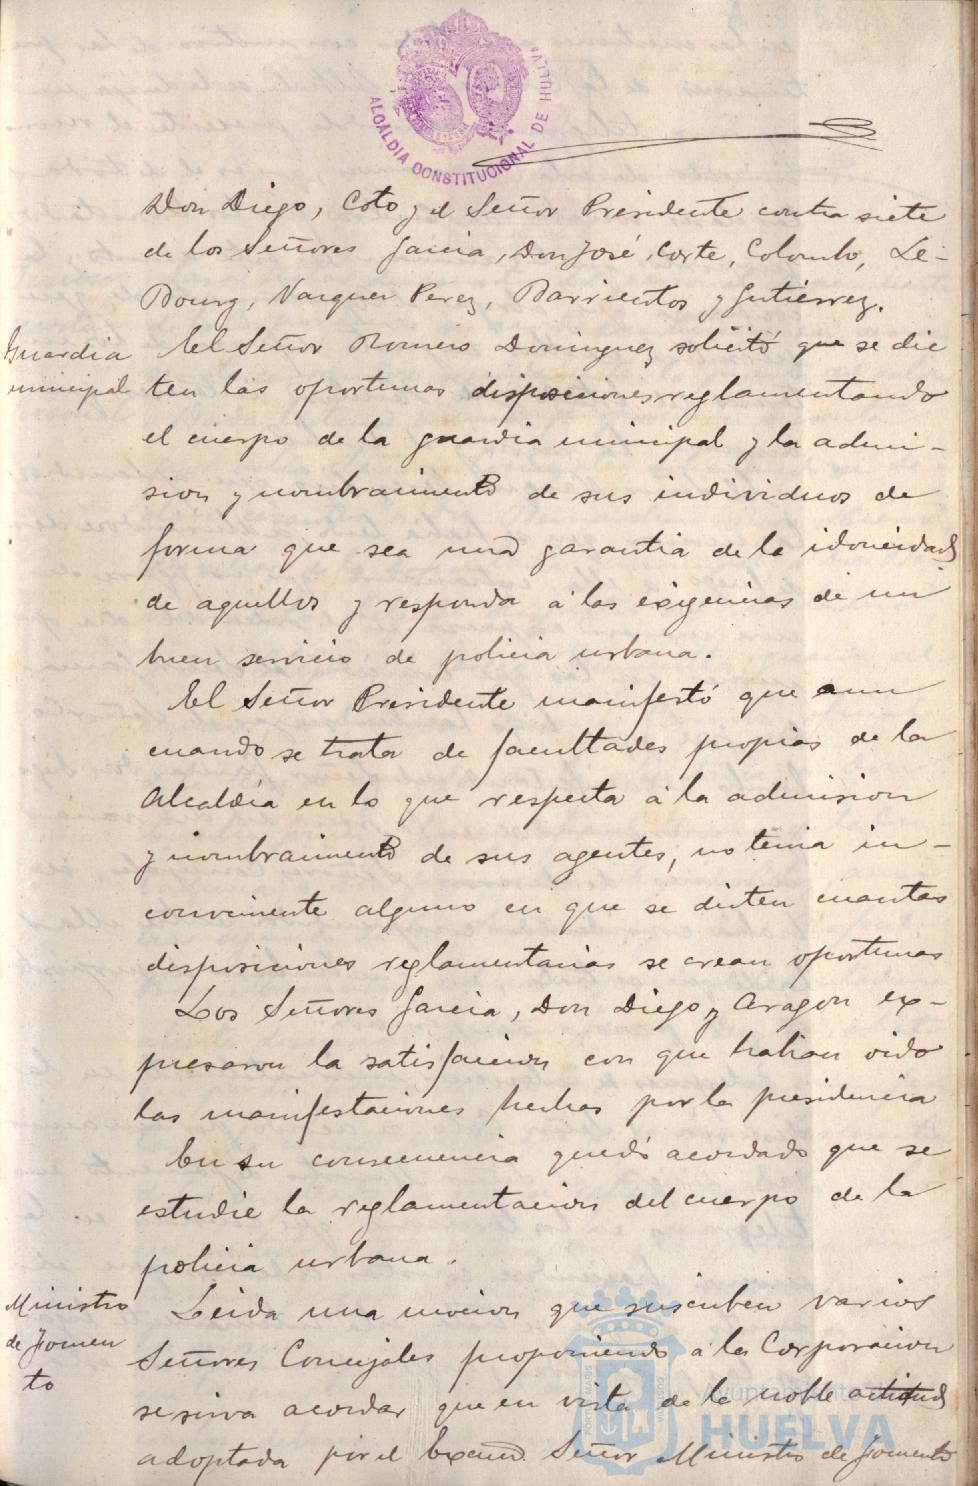 ALCALDIA CONSTITUCIONAL DE HUELVA
Don Diego, Coto y el Señor Presidente contra siete
de los Señores Garcia, Don José, Corte, Colombo, Le-
Bourg, Vazquez Perez, Barrientos y Gutierrez.
Guardia
municipal
El Señor Romero Dominguez solicitó que se dic
ten las oportunas disposiciones reglamentando
el cuerpo de la guardia municipal y la admi-
sion y nombramiento de sus individuos de
forma que sea una garantia de la idoneidad
de aquellos y responda á las exigencias de un
buen servicio de policia urbana.
El Señor Presidente manifestó que aun
cuando se trata de facultades propias de la
Alcaldía en lo que respecta á la admision
y nombramiento de sus agentes, no tenia in-
conveniente alguno en que se dicten cuantas
disposiciones reglamentarias se crean oportunas
Los Señores Garcia, Don Diego y Aragon ex-
presaron la satisfaccion con que habian oido
las manifestaciones hechas por la presidencia
En su consecuencia quedó acordado que se
estudie la reglamentacion del cuerpo de la
policia urbana.
Ministro
de Fomen
to
Leida una mocion que suscriben varios
Señores Concejales proponiendo á la Corporacion
se sirva acordar que en vista de la noble actitud
adoptada por el Excmo. Señor Ministro de Fomento
Ayuntamiento
HUELVA